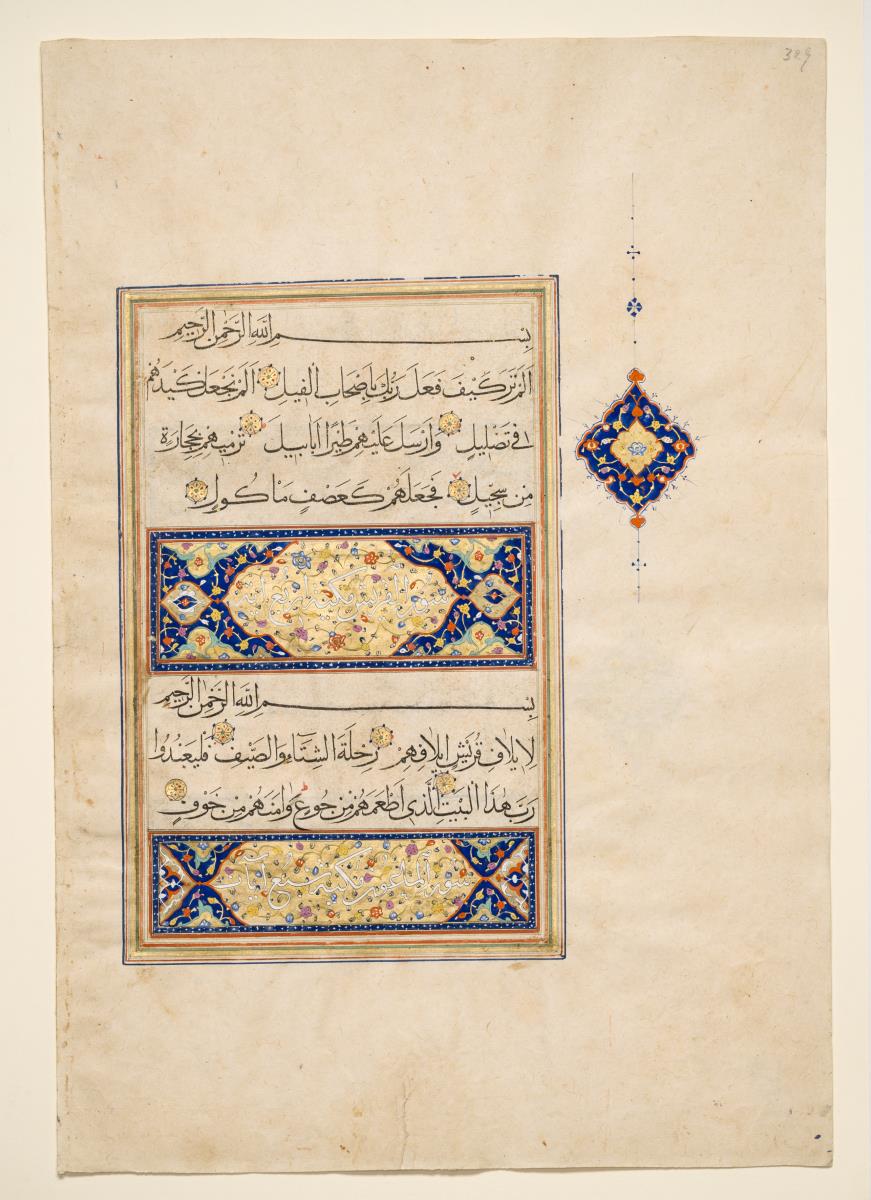 389
بِسْمِ اللَّهِ الرَّحْمٰنِ الرَّحِيمِ
اَلَمْ تَرَ كَيْفَ فَعَلَ رَبُّكَ بِاَصْحَابِ الْفِيلِ اَلَمْ يَجْعَلْ كَيْدَهُمْ
فِى تَضْلِيلٍ وَاَرْسَلَ عَلَيْهِمْ طَيْرًا اَبَابِيلَ تَرْمِيهِمْ بِحِجَارَةٍ
مِنْ سِجِّيلٍ فَجَعَلَهُمْ كَعَصْفٍ مَاْكُولٍ
سورة القريش مكية اربع آيات
بِسْمِ اللَّهِ الرَّحْمٰنِ الرَّحِيمِ
لِاِيلَافِ قُرَيْشٍ اِيلَافِهِمْ رِحْلَةَ الشِّتَاءِ وَالصَّيْفِ فَلْيَعْبُدُوا
رَبَّ هٰذَا الْبَيْتِ الَّذِى اَطْعَمَهُمْ مِنْ جُوعٍ وَاٰمَنَهُمْ مِنْ خَوْفٍ
سورة الماعون مكية سبع آيات